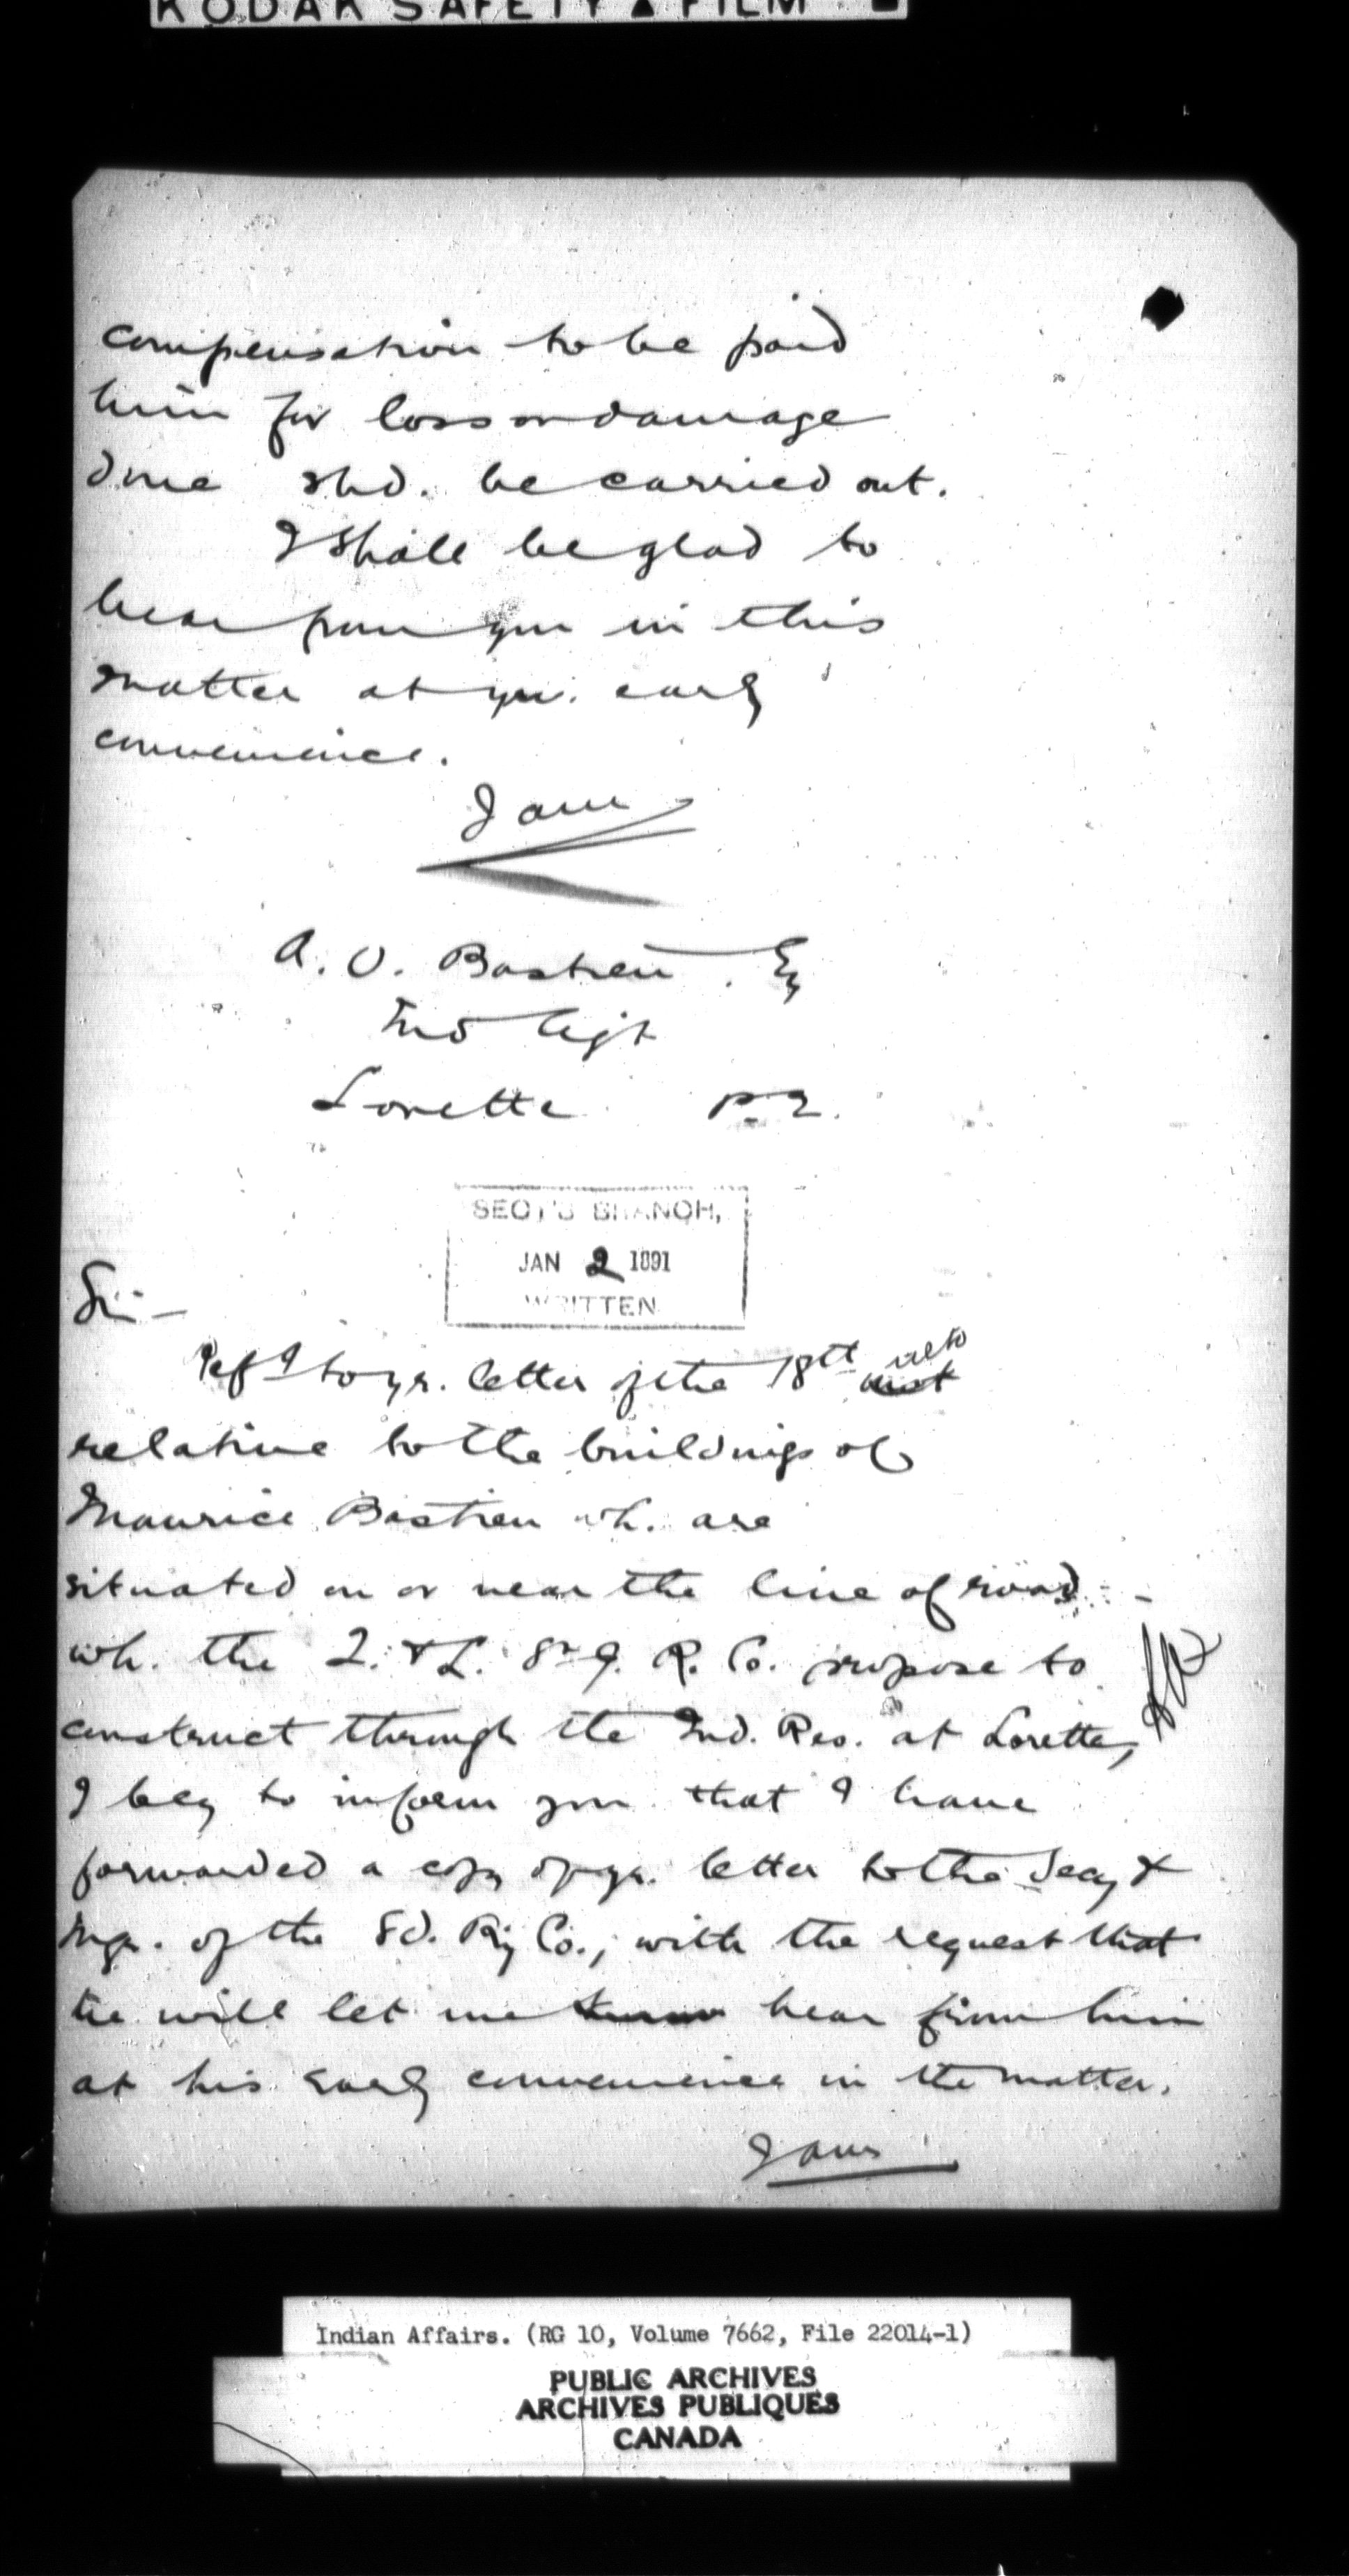 KODAK SAFETY ▲ FILM
compensation to be paid
him for loss or damage
done shd. be carried out.
I shall be glad to
hear from you in this
matter at yur. early
convenience.
I am
A. O. Bastien. Esq
Ind Agt
Lorette P.Q.
SECY'S BRANCH,
JAN 2 1891
WRITTEN
Sir—
Refg to yr. letter of the 18th ulto inst
relative to the buildings of
Maurice Bastien wh. are
situated on or near the line of road
wh. the Q. & L. St J. R. Co. propose to
construct through the Ind. Res. at Lorette,
I beg to inform you that I have
forwarded a copy of yr. letter to the Secy &
Mgr. of the sd. Ry Co., with the request that
he will let me know hear from him
at his early convenience in the matter.
I am
Indian Affairs. (RG 10, Volume 7662, File 22014-1)
PUBLIC ARCHIVES
ARCHIVES PUBLIQUES
CANADA